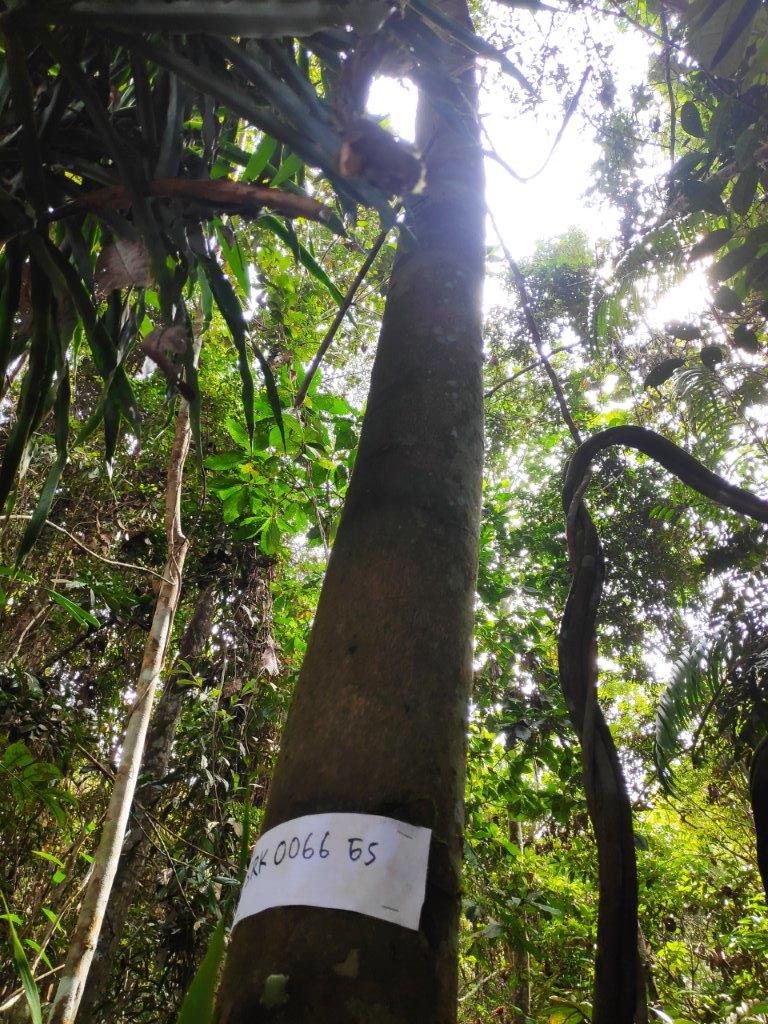 RK 0066 ES